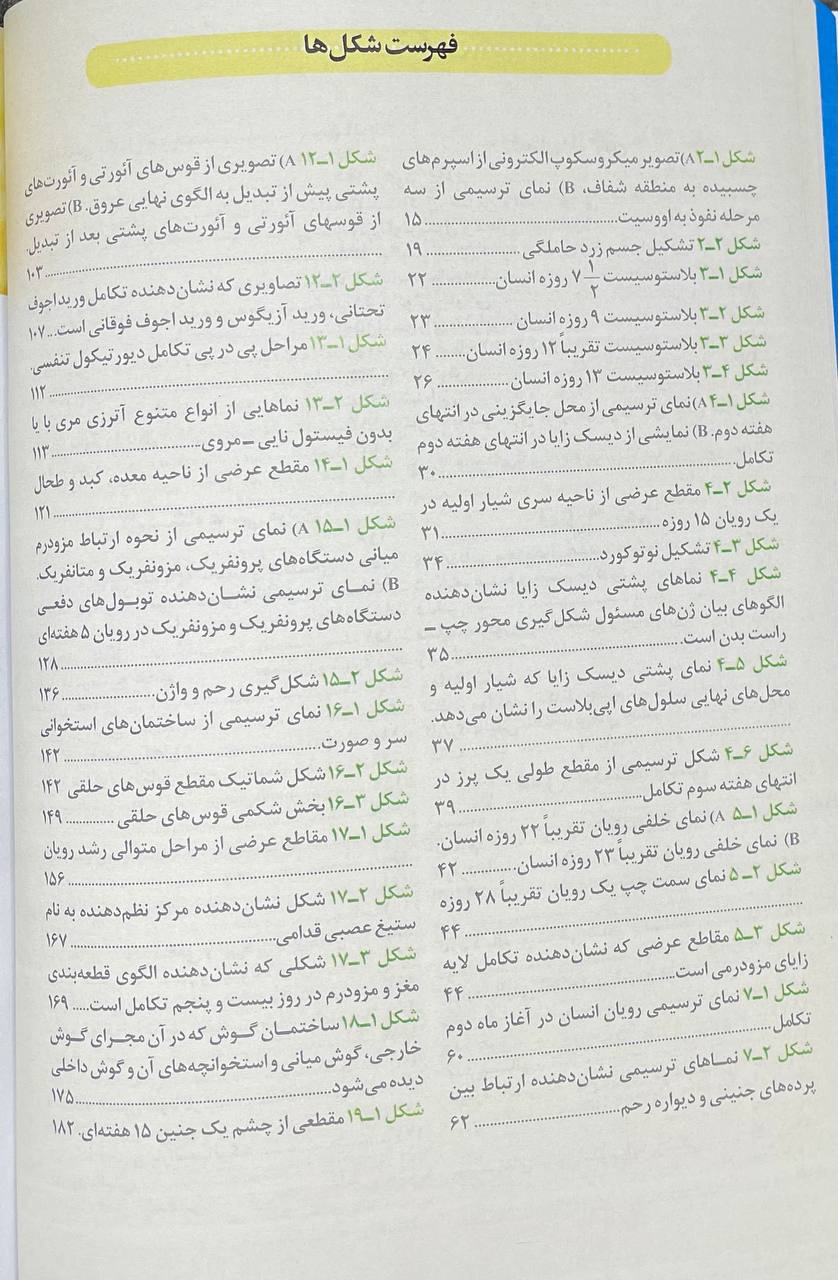 فهرست شکل‌ها
شکل ۱ـ۲ A) تصویر میکروسکوپ الکترونی از اسپرم‌های
چسبیده به منطقه شفاف، B) نمای ترسیمی از سه
مرحله نفوذ به اووسیت.......................................... ۱۵
شکل ۲ـ۲ تشکیل جسم زرد حاملگی......................... ۱۹
شکل ۱ـ۳ بلاستوسیست ۷ ۱/۲ روزه انسان................ ۲۲
شکل ۲ـ۳ بلاستوسیست ۹ روزه انسان .................... ۲۳
شکل ۳ـ۳ بلاستوسیست تقریباً ۱۲ روزه انسان........ ۲۴
شکل ۴ـ۳ بلاستوسیست ۱۳ روزه انسان................... ۲۶
شکل ۱ـ۴ A) نمای ترسیمی از محل جایگزینی در انتهای
هفته دوم. B) نمایشی از دیسک زایا در انتهای هفته دوم
تکامل............................................................ ۳۰
شکل ۲ـ۴ مقطع عرضی از ناحیه سری شیار اولیه در
یک رویان ۱۵ روزه............................................ ۳۱
شکل ۳ـ۴ تشکیل نوتوکورد................................. ۳۴
شکل ۴ـ۴ نماهای پشتی دیسک زایا نشان‌دهنده
الگوهای بیان ژن‌های مسئول شکل‌گیری محور چپ ـ
راست بدن است............................................... ۳۵
شکل ۵ـ۴ نمای پشتی دیسک زایا که شیار اولیه و
محل‌های نهایی سلول‌های اپی‌بلاست را نشان می‌دهد.
.................................................................... ۳۷
شکل ۶ـ۴ شکل ترسیمی از مقطع طولی یک پرز در
انتهای هفته سوم تکامل...................................... ۳۹
شکل ۱ـ۵ A) نمای خلفی رویان تقریباً ۲۲ روزه انسان.
B) نمای خلفی رویان تقریباً ۲۳ روزه انسان............. ۴۲
شکل ۲ـ۵ نمای سمت چپ یک رویان تقریباً ۲۸ روزه
.................................................................... ۴۴
شکل ۳ـ۵ مقاطع عرضی که نشان‌دهنده تکامل لایه
زایای مزودرمی است.......................................... ۴۴
شکل ۱ـ۷ نمای ترسیمی رویان انسان در آغاز ماه دوم
تکامل............................................................ ۶۰
شکل ۲ـ۷ نماهای ترسیمی نشان‌دهنده ارتباط بین
پرده‌های جنینی و دیواره رحم.............................. ۶۲
شکل ۱ـ۱۲ A) تصویری از قوس‌های آئورتی و آئورت‌های
پشتی پیش از تبدیل به الگوی نهایی عروق. B) تصویری
از قوسهای آئورتی و آئورت‌های پشتی بعد از تبدیل.
.................................................................... ۱۰۳
شکل ۲ـ۱۲ تصاویری که نشان‌دهنده تکامل ورید اجوف
تحتانی، ورید آزیگوس و ورید اجوف فوقانی است... ۱۰۷
شکل ۱ـ۱۳ مراحل پی در پی تکامل دیورتیکول تنفسی.
.................................................................... ۱۱۲
شکل ۲ـ۱۳ نماهایی از انواع متنوع آترزی مری با یا
بدون فیستول نایی ـ مروی.................................. ۱۱۳
شکل ۱ـ۱۴ مقطع عرضی از ناحیه معده، کبد و طحال
.................................................................... ۱۲۱
شکل ۱ـ۱۵ A) نمای ترسیمی از نحوه ارتباط مزودرم
میانی دستگاه‌های پرونفریک، مزونفریک و متانفریک.
B) نمای ترسیمی نشان‌دهنده توبول‌های دفعی
دستگاه‌های پرونفریک و مزونفریک در رویان ۵ هفته‌ای
.................................................................... ۱۲۸
شکل ۲ـ۱۵ شکل‌گیری رحم و واژن........................ ۱۳۶
شکل ۱ـ۱۶ نمای ترسیمی از ساختمان‌های استخوانی
سر و صورت..................................................... ۱۴۲
شکل ۲ـ۱۶ شکل شماتیک مقطع قوس‌های حلقی ۱۴۲
شکل ۳ـ۱۶ بخش شکمی قوس‌های حلقی ............. ۱۴۹
شکل ۱ـ۱۷ مقاطع عرضی از مراحل متوالی رشد رویان
.................................................................... ۱۵۶
شکل ۲ـ۱۷ شکل نشان‌دهنده مرکز نظم‌دهنده به نام
ستیغ عصبی قدامی........................................... ۱۶۷
شکل ۳ـ۱۷ شکلی که نشان‌دهنده الگوی قطعه‌بندی
مغز و مزودرم در روز بیست و پنجم تکامل است..... ۱۶۹
شکل ۱ـ۱۸ ساختمان گوش که در آن مجرای گوش
خارجی، گوش میانی و استخوانچه‌های آن و گوش داخلی
دیده می‌شود.................................................... ۱۷۵
شکل ۱ـ۱۹ مقطعی از چشم یک جنین ۱۵ هفته‌ای. ۱۸۲